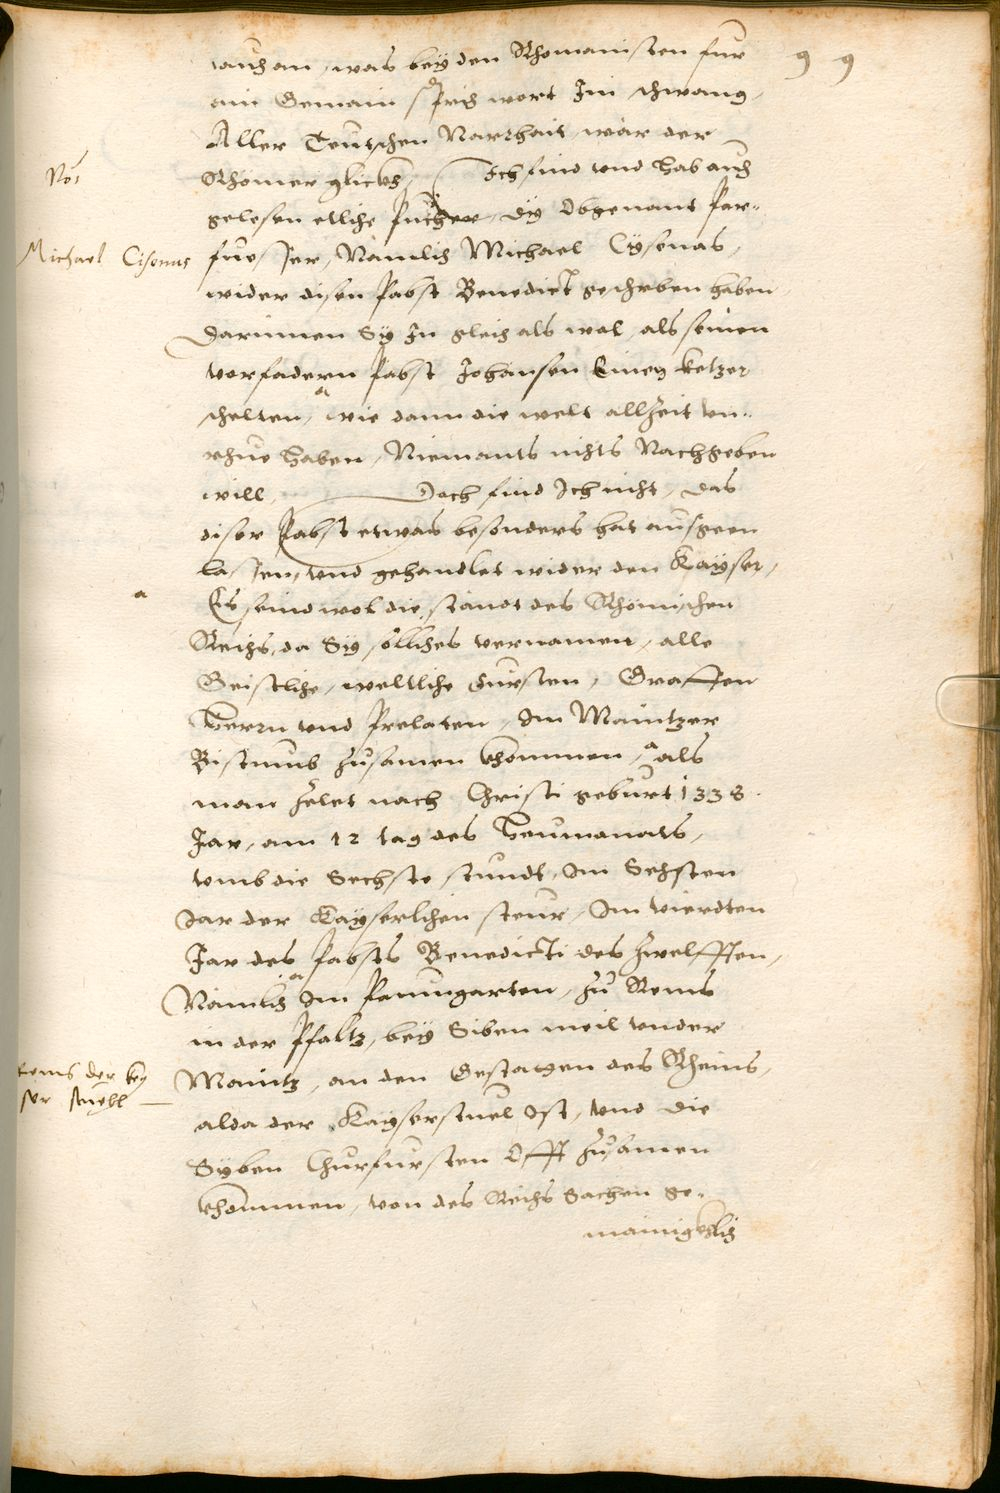 99
auch an, was bey den Rhomanisten fur
ain Gemain sprich wort Im schwang,
Aller Teutschen Narrhait, war der
Rhomer glickh, Ich find vnd hab auch
gelesen etliche puecher, dy Obgenant Par-
fuesser, Nämlich Michael Cysenas,
wider disen Pabst Benedict geschrben haben
Darinnen Sy In gleich als wol, als seinen
vorfadern Pabst Johansen Einen ketzer
schelten, wie dann die welt allzeit vn-
rhue haben, Niemants nichts Nachgeben
will, Doch find Ich nicht, das
diser Pabst etwas besonders hat ausgeen
lassen, vnd gehandlet wider den Kayser,
Es seind wol die ständt des Rhömischen
Reichs, da Sy sölliches vernamen, alle
Geistliche, weltliche Fürsten, Graffen
Herrn vnd Prelaten, Im Maintzer
Bistumb zusamen khommen, als
man zelet nach Christi geburt 1338.
Jar, am 12 tag des Heumonats,
vmb die Sechste stundt, Im Sechsten
Jar der Kayserlichen steur, Im vierdten
Jar des Pabsts Benedicti des zwelfften,
Nämlich Im Paumgarten, zu Rens
in der Pfaltz, bey Siben meil vnder
Maintz, an den Gestatgen des Rheins,
alda der Kayserstuel Ist, vnd die
Syben Churfursten Offt zusamen
khommen, von des Reichs Sachen ge-
mainigkhlich
No:
Michael Cisenus
rens der key
ser stuehl